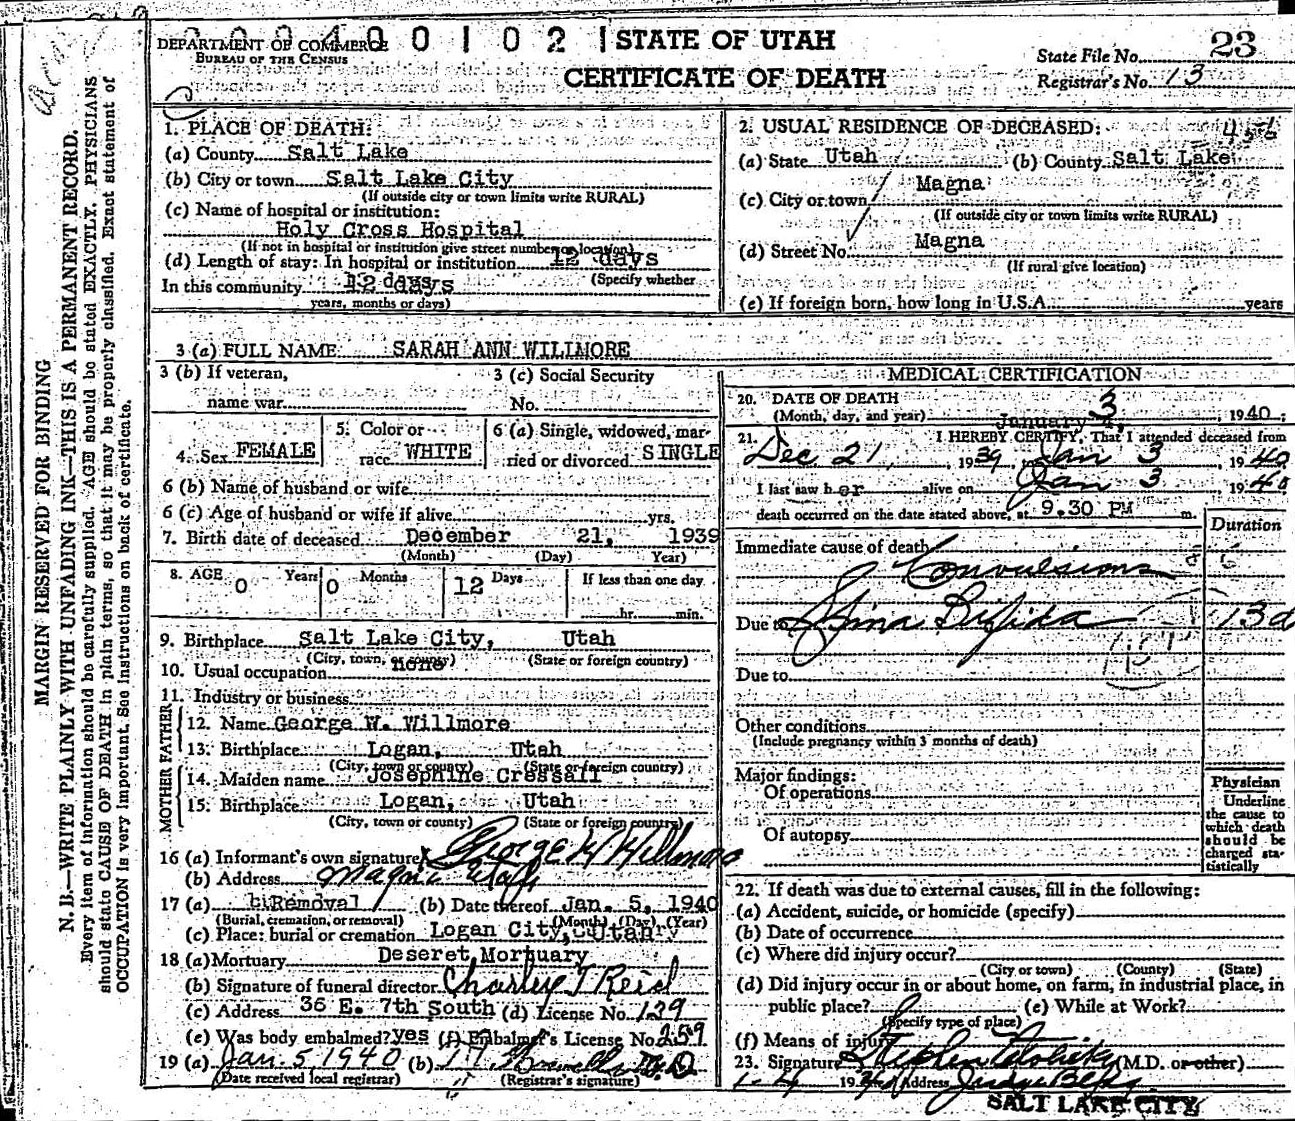 DEPARTMENT OF COMMERCE
BUREAU OF THE CENSUS
0 0 1 0 2
STATE OF UTAH
CERTIFICATE OF DEATH
State File No. 23
Registrar's No. 13
MARGIN RESERVED FOR BINDING
N. B.—WRITE PLAINLY WITH UNFADING INK—THIS IS A PERMANENT RECORD.
Every item of information should be carefully supplied. AGE should be stated EXACTLY. PHYSICIANS
should state CAUSE OF DEATH in plain terms, so that it may be properly classified. Exact statement of
OCCUPATION is very important. See instructions on back of certificate.
1. PLACE OF DEATH:
(a) County Salt Lake
(b) City or town Salt Lake City
(If outside city or town limits write RURAL)
(c) Name of hospital or institution:
Holy Cross Hospital
(If not in hospital or institution give street number or location)
(d) Length of stay: In hospital or institution 12 days
(Specify whether
In this community 12 days
years, months or days)
2. USUAL RESIDENCE OF DECEASED:
(a) State Utah (b) County Salt Lake
(c) City or town Magna
(If outside city or town limits write RURAL)
(d) Street No. Magna
(If rural give location)
(e) If foreign born, how long in U.S.A. years
3 (a) FULL NAME SARAH ANN WILLMORE
3 (b) If veteran, name war
3 (c) Social Security No.
4. Sex FEMALE
5. Color or race WHITE
6 (a) Single, widowed, married or divorced SINGLE
6 (b) Name of husband or wife
6 (c) Age of husband or wife if alive yrs.
7. Birth date of deceased December 21, 1939
(Month) (Day) Year)
8. AGE 0 Years 0 Months 12 Days If less than one day
hr. min.
9. Birthplace Salt Lake City, Utah
(City, town, or county) (State or foreign country)
10. Usual occupation none
11. Industry or business
FATHER
12. Name George W. Willmore
13. Birthplace Logan, Utah
(City, town or county) (State or foreign country)
MOTHER
14. Maiden name Josephine Cressall
15. Birthplace Logan, Utah
(City, town or county) (State or foreign country)
16 (a) Informant's own signature George W Willmore
(b) Address Magna Utah
17 (a) Removal (b) Date thereof Jan. 5, 1940
(Burial, cremation, or removal) (Month) (Day) (Year)
(c) Place: burial or cremation Logan City, Utah
18 (a) Mortuary Deseret Mortuary
(b) Signature of funeral director Charley T Reid
(c) Address 36 E. 7th South (d) License No. 139
(e) Was body embalmed? yes (f) Embalmer's License No. 259
19 (a) Jan. 5 1940 (b)
(Date received local registrar) (Registrar's signature)
MEDICAL CERTIFICATION
20. DATE OF DEATH
(Month, day, and year) January 3 1940
21. I HEREBY CERTIFY, That I attended deceased from
Dec 21, 1939 Jan 3, 1940
I last saw her alive on Jan 3 1940
death occurred on the date stated above, at 9.30 PM m.
Duration
Immediate cause of death
Convulsions
Due to Spina Bifida 13d
Due to
Other conditions
(Include pregnancy within 3 months of death)
Major findings:
Of operations
Of autopsy
Physician
Underline
the cause to
which death
should be
charged sta-
tistically
22. If death was due to external causes, fill in the following:
(a) Accident, suicide, or homicide (specify)
(b) Date of occurrence
(c) Where did injury occur?
(City or town) (County) (State)
(d) Did injury occur in or about home, on farm, in industrial place, in
public place? (e) While at Work?
(Specify type of place)
(f) Means of injury
23. Signature (M.D. or other)
1-4 19 Address Judge Bldg
SALT LAKE CITY